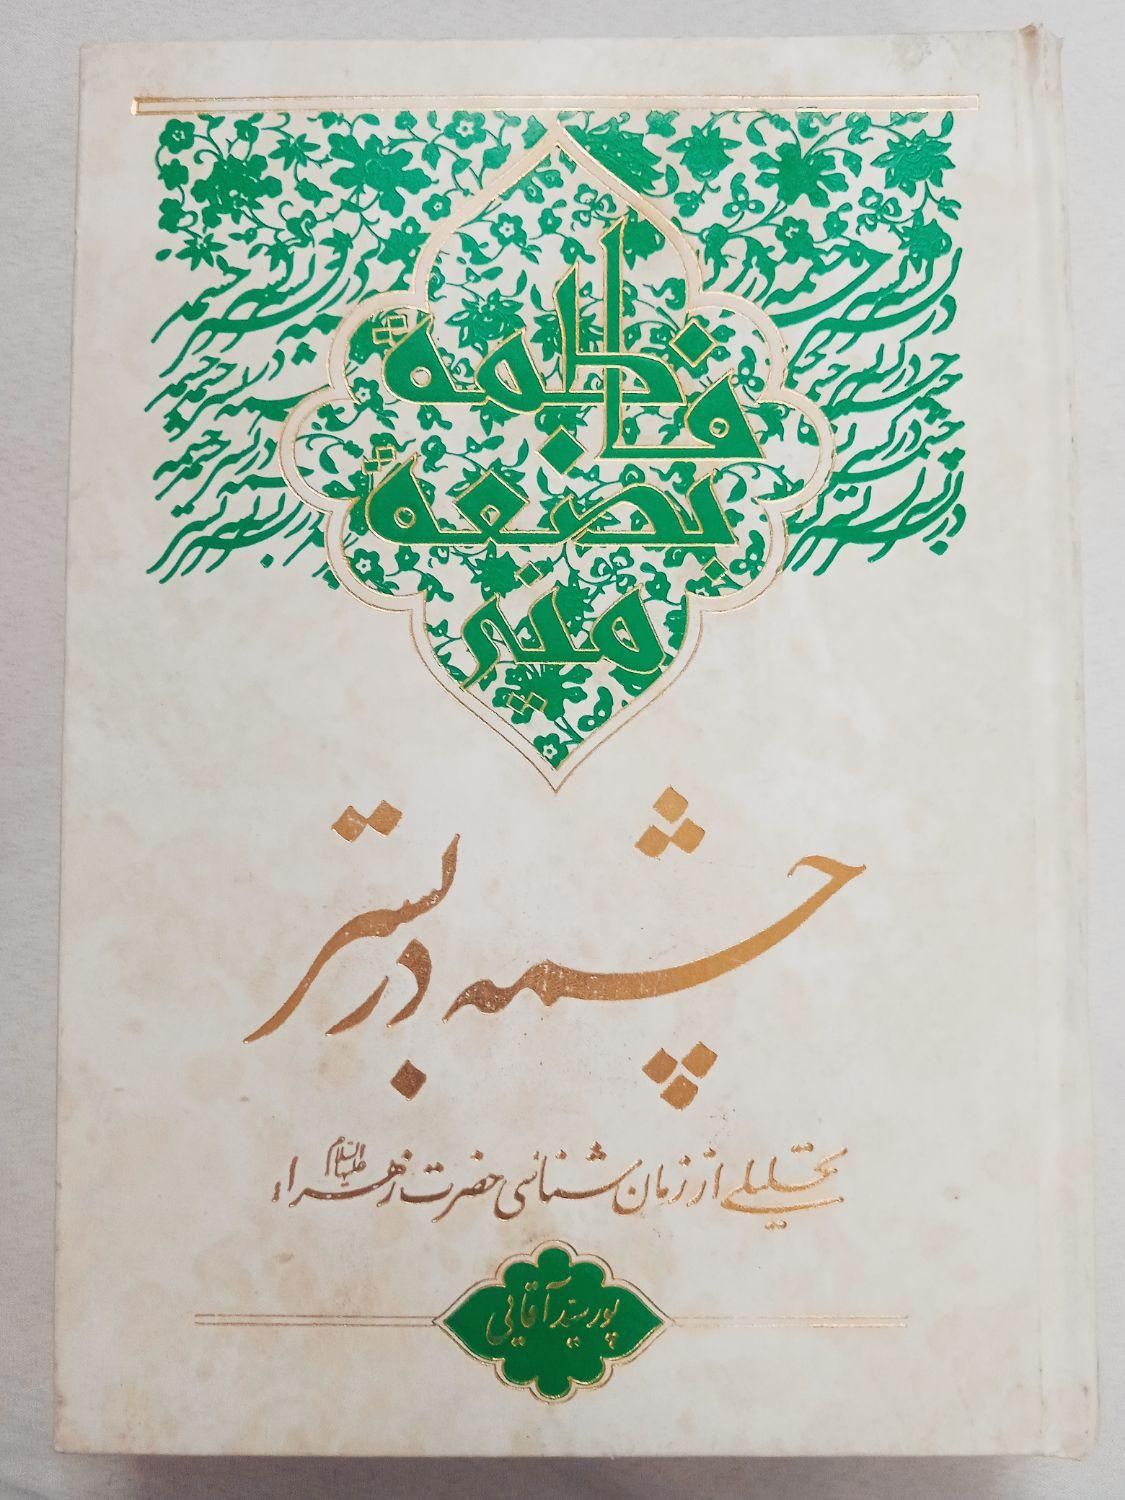 فاطمة
بضعة
منی
چشمه در بستر
تحلیلی از زمان شناسی حضرت زهراء علیهاالسلام
پور سیّد آقایی